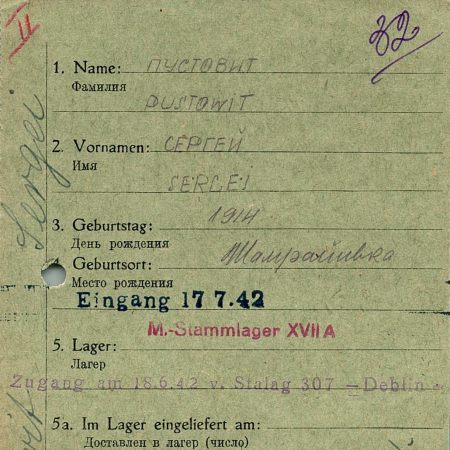 II
32
1. Name: ПУСТОВИТ
Фамилия
PUSTOWIT
2. Vornamen: СЕРГЕЙ
Имя
SERGEJ
3. Geburtstag: 1914
День рождения
4. Geburtsort:
Место рождения
Eingang 17 7.42
M.-Stammlager XVII A
5. Lager:
Лагер
Zugang am 18.6.42 v. Stalag 307 — Deblin -
5a. Im Lager eingeliefert am:
Доставлен в лагер (число)
Sergei